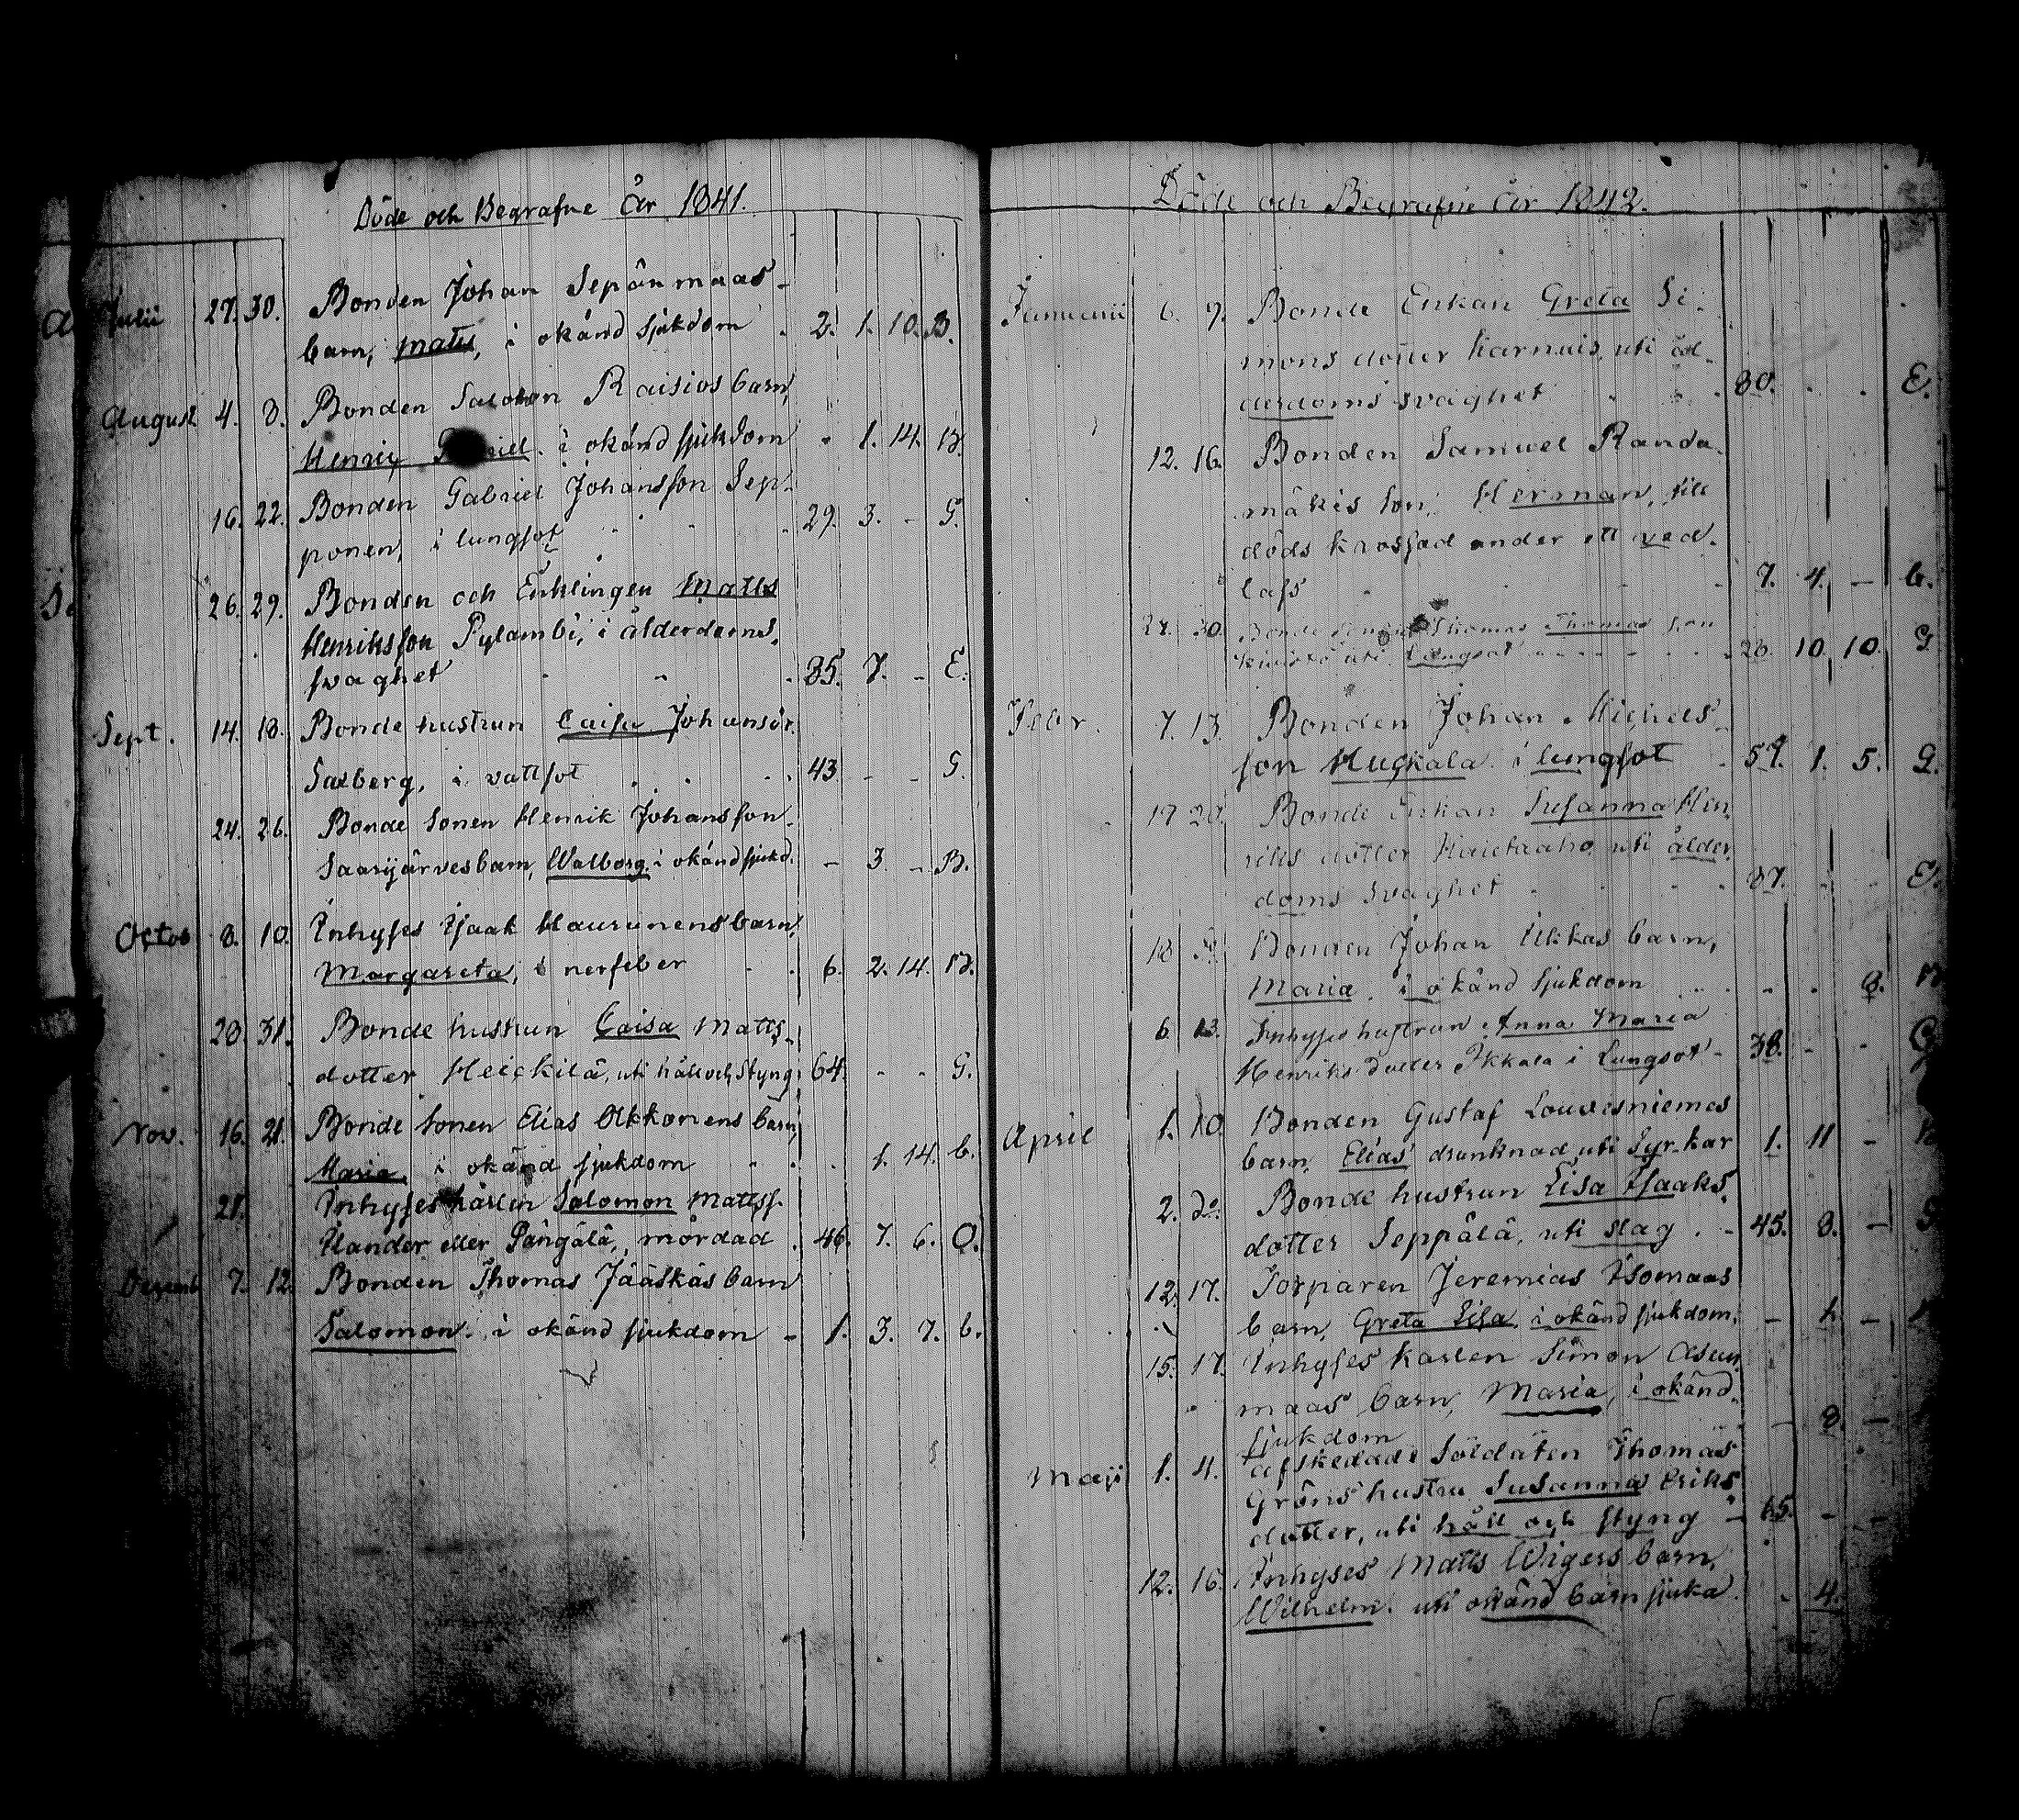 Döde och Begrafne År 1841.
Julii 27. 30. Bonden Johan Sepänmaas
barn, Matts, i okänd sjukdom . 2. 1. 10. B.
August. 4. 8. Bonden Salomon Raisios barn,
Henric i okänd sjukdom - 1. 14. B.
16. 22. Bonden Gabriel Johansson Sep-
ponen, i lungsot 29. 3. - G.
26. 29. Bonden och Enklingen Matts
Henriksson Pylambi, i ålderdoms-
svaghet 85. 7. - E.
Sept. 14. 18. Bonde hustrun Caisa Johansdr.
Saxberg, i vattsot 43 - - G.
24. 26. Bonde Sonen Henrik Johansson
Saarijärves barn, Walborg. i okänd sjukd. - 3 - B.
Octob 8. 10. Inhyses Isaak Haurunens barn,
Margareta, i nerfeber 6. 2. 14. B.
28 31. Bonde hustrun Caisa Matts-
dotter Heickilä, uti håll och Styng 64. - - G.
Nov. 16. 21. Bonde Sonen Elias Ukkonens barn,
Maria, i okänd sjukdom . 1. 14. b.
21. Inhyses karlen Salomon Mattss.
Ilander eller Pängälä, mördad . 46. 7. 6. O.
Decemb 7. 12. Bonden Thomas Jääskäs barn
Salomon. i okänd sjukdom - 1. 3. 7. b.
Döde och Begrafne År 1842.
Januarii 6. 9. Bonde Enkan Greta Si-
mons dotter Karnais, uti ål-
derdoms svaghet 80. . . E.
12. 16. Bonden Samuel Randa-
mäkis Son, Herman, till
döds krossad under ett ved-
lass 7. 4. - b.
30 Bonde Thomas Thomas son
uti Lungsot 28. 10. 10. G
Febr. 7. 13. Bonden Johan Michels-
son Huckala i lungsot 59. 1. 5. G.
17 20. Bonde Enkan Susanna Hen-
riks dotter Hautaaho, uti ålder-
doms svaghet 87. - - E.
18 Bonden Johan Ukkas barn,
Maria, i okänd sjukdom - . 8.
6. 13. Inhyses hustrun Anna Maria
Henriks dotter Ikkala i Lungsot - 38. - - G
April 1. 10. Bonden Gustaf Louvesniemes
barn, Elias drunknad uti Syr-kar 1. 11 -
2. do. Bonde hustrun Lisa Isaaks
dotter Seppälä, uti slag . - 45. 8. - G
12. 17. Torparen Jeremias Isomaas
barn, Greta Lisa, i okänd sjukdom, -
15. 17. Inhyses karlen Simon Asun-
maas barn, Maria, i okänd
sjukdom - 8. -
Maji 1. 4. afskedade Soldaten Thomas
Gröns hustru Susanna Eriks
dotter, uti håll och styng - 65. -
12. 16. Inhyses Matts Wigers barn,
Wilhelm. uti okänd barn sjuka . 4.